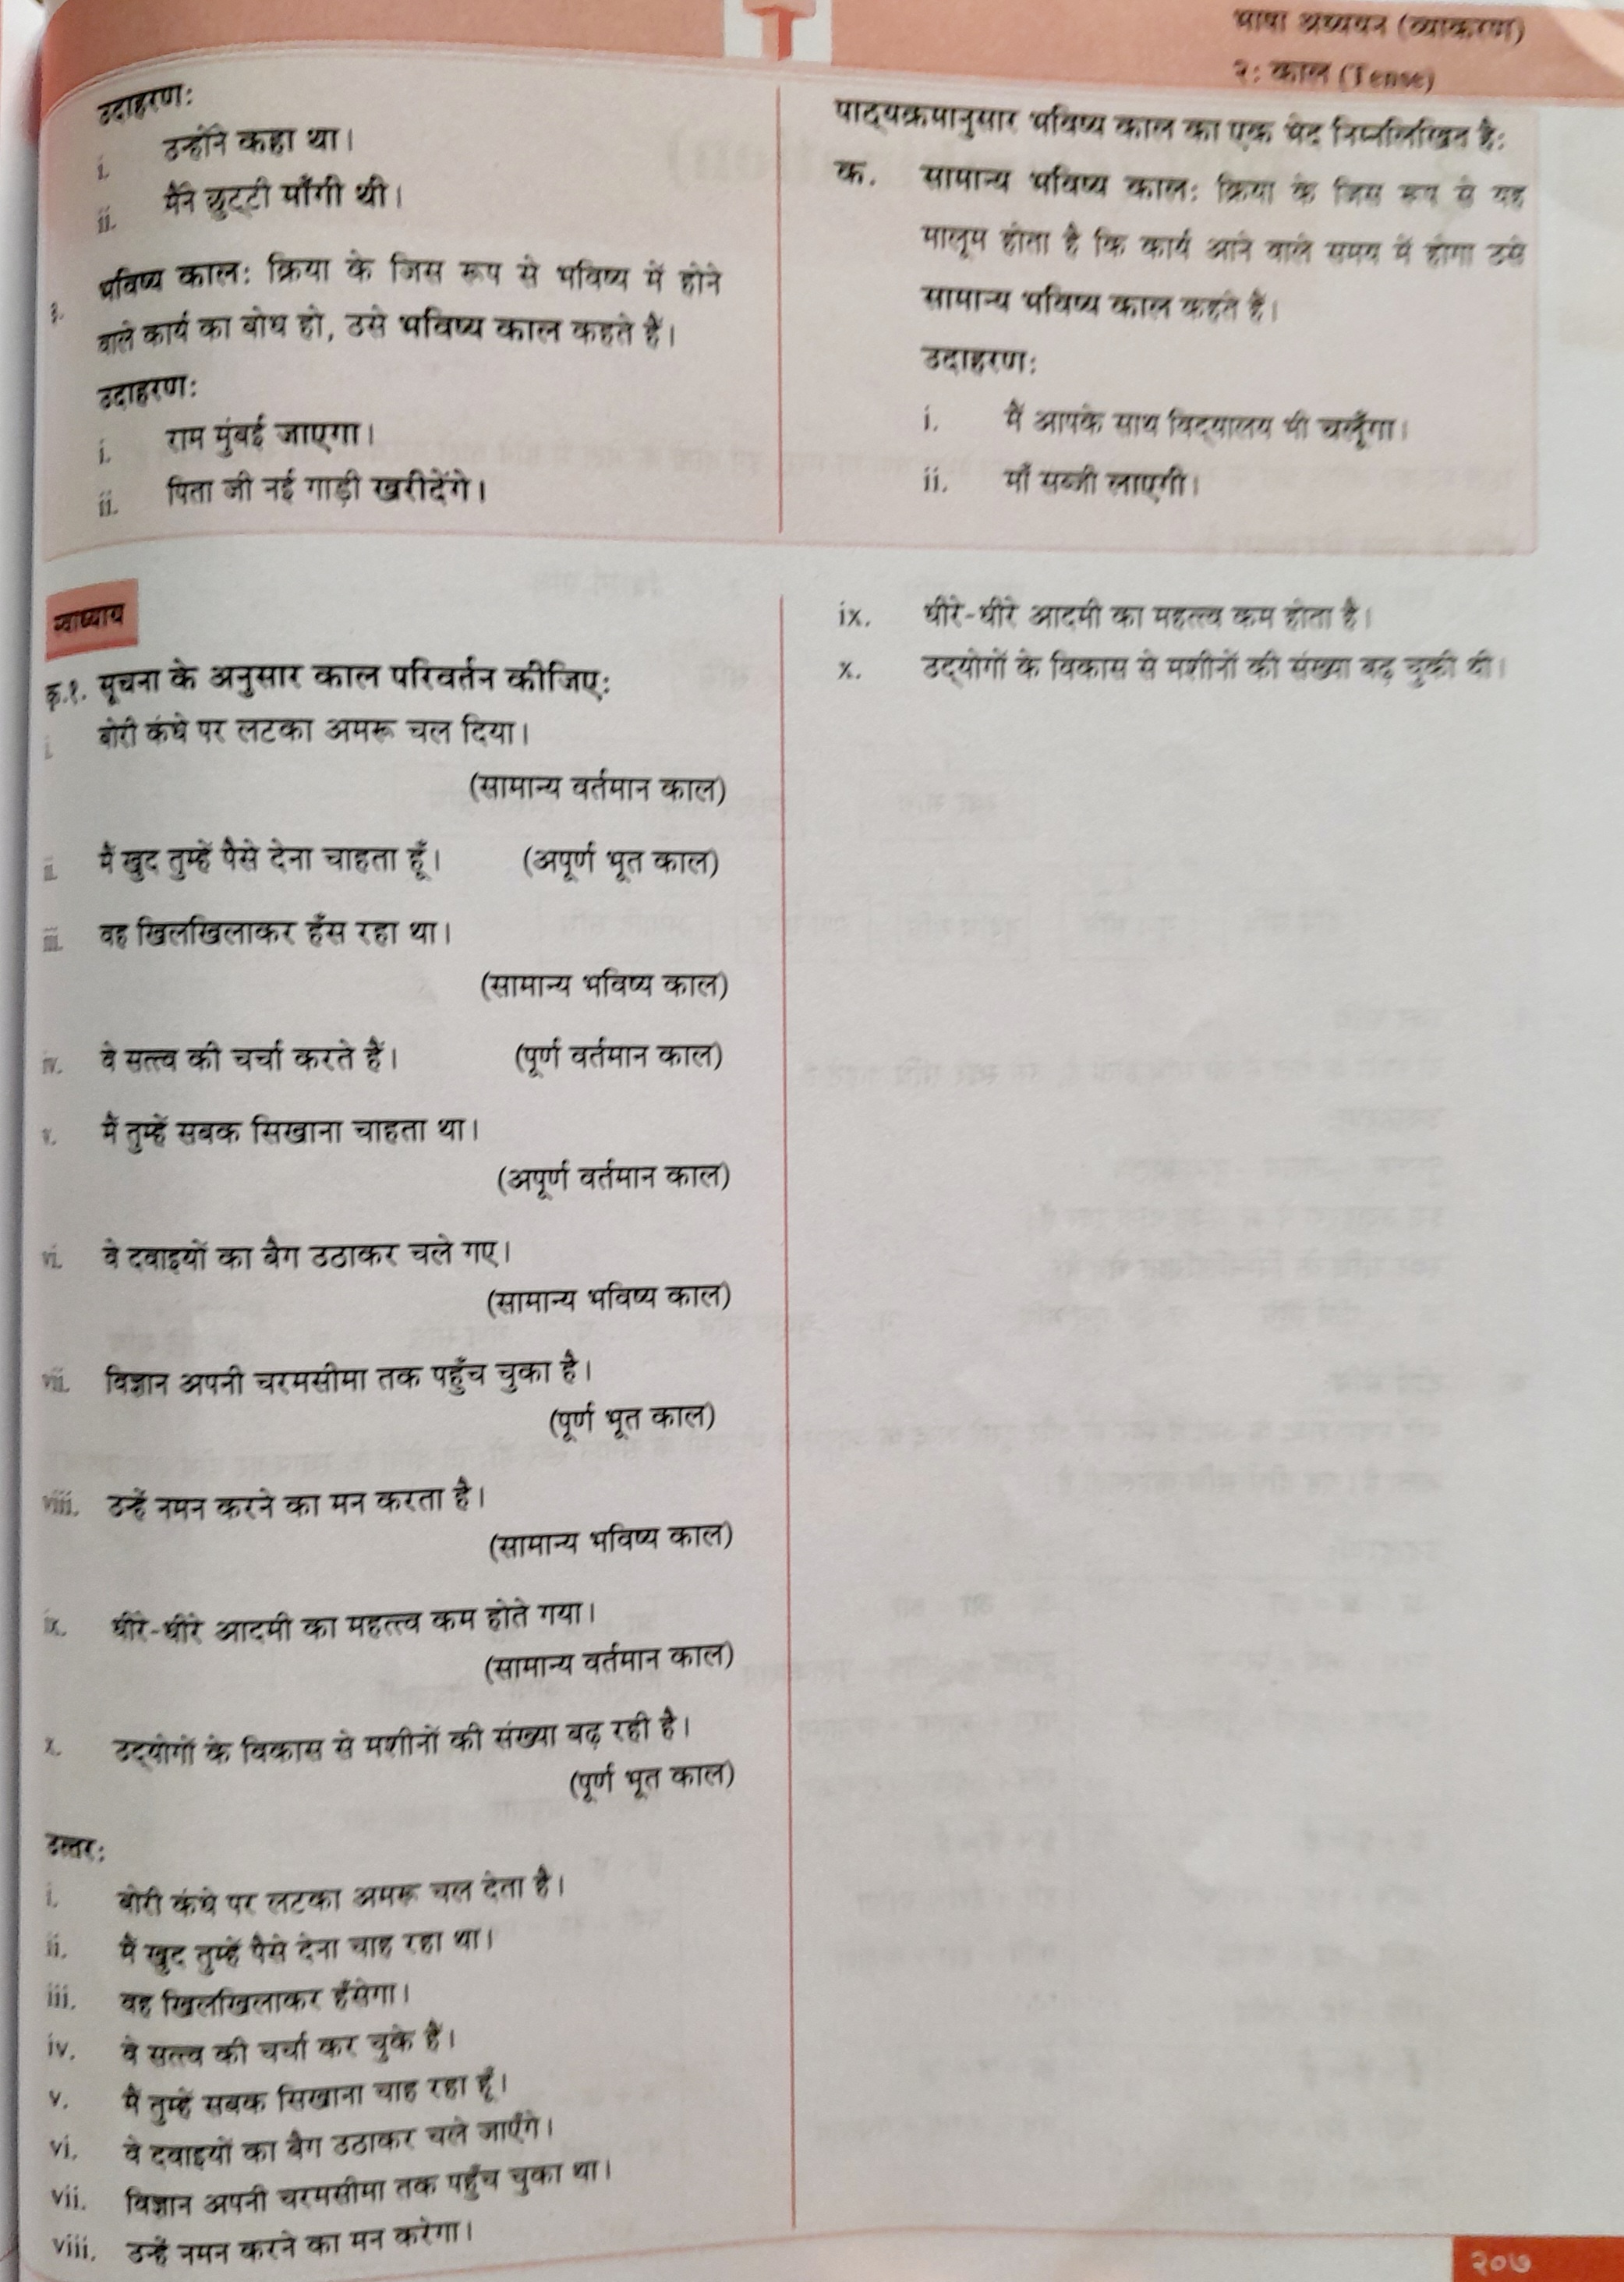 भाषा अध्ययन (व्याकरण)
२: काल (Tense)
उदाहरण:
i. उन्होंने कहा था।
ii. मैंने छुट्टी माँगी थी।
३. भविष्य काल: क्रिया के जिस रूप से भविष्य में होने
वाले कार्य का बोध हो, उसे भविष्य काल कहते हैं।
उदाहरण:
i. राम मुंबई जाएगा।
ii. पिता जी नई गाड़ी खरीदेंगे।
पाठ्यक्रमानुसार भविष्य काल का एक भेद निम्नलिखित है:
क. सामान्य भविष्य काल: क्रिया के जिस रूप से यह
मालूम होता है कि कार्य आने वाले समय में होगा उसे
सामान्य भविष्य काल कहते हैं।
उदाहरण:
i. मैं आपके साथ विद्यालय भी चलूँगा।
ii. माँ सब्जी लाएगी।
स्वाध्याय
कृ.१. सूचना के अनुसार काल परिवर्तन कीजिए:
i. बोरी कंधे पर लटका अमरू चल दिया।
(सामान्य वर्तमान काल)
ii. मैं खुद तुम्हें पैसे देना चाहता हूँ। (अपूर्ण भूत काल)
iii. वह खिलखिलाकर हँस रहा था।
(सामान्य भविष्य काल)
iv. वे सत्त्व की चर्चा करते हैं। (पूर्ण वर्तमान काल)
v. मैं तुम्हें सबक सिखाना चाहता था।
(अपूर्ण वर्तमान काल)
vi. वे दवाइयों का बैग उठाकर चले गए।
(सामान्य भविष्य काल)
vii. विज्ञान अपनी चरमसीमा तक पहुँच चुका है।
(पूर्ण भूत काल)
viii. उन्हें नमन करने का मन करता है।
(सामान्य भविष्य काल)
ix. धीरे-धीरे आदमी का महत्त्व कम होते गया।
(सामान्य वर्तमान काल)
x. उद्योगों के विकास से मशीनों की संख्या बढ़ रही है।
(पूर्ण भूत काल)
उत्तर:
i. बोरी कंधे पर लटका अमरू चल देता है।
ii. मैं खुद तुम्हें पैसे देना चाह रहा था।
iii. वह खिलखिलाकर हँसेगा।
iv. वे सत्त्व की चर्चा कर चुके हैं।
v. मैं तुम्हें सबक सिखाना चाह रहा हूँ।
vi. वे दवाइयों का बैग उठाकर चले जाएँगे।
vii. विज्ञान अपनी चरमसीमा तक पहुँच चुका था।
viii. उन्हें नमन करने का मन करेगा।
ix. धीरे-धीरे आदमी का महत्त्व कम होता है।
x. उद्योगों के विकास से मशीनों की संख्या बढ़ चुकी थी।
२०७